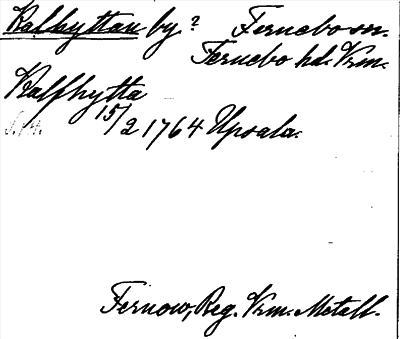 Kalhyttan by? Fernebo sn.
Fernebo hd. Vrm.
Kalfhytta
15/2 1764 Upsala.
Fernow, Reg. Vrm. Metall.